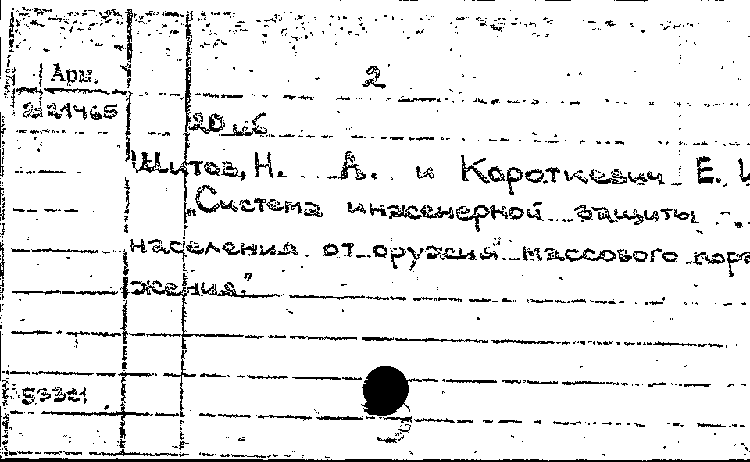 2
Арш.
2221465
20 иб
Шитов, Н. А. и Короткевич Е. И
„Система инженерной защиты
населения от оружия" массового пора
жения."
53321